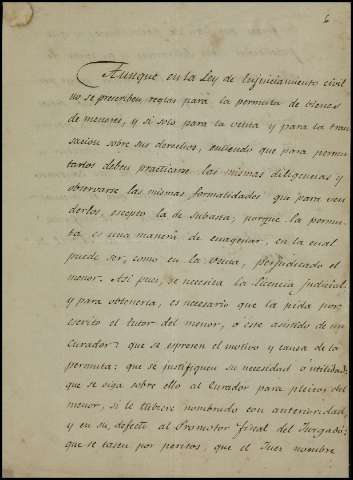 6
Aunque en la Ley de Enjuiciamiento civil
no se prescriben reglas para la permuta de bienes
de menores, y si solo para la venta y para la tran
sacion sobre sus derechos, entiendo que para permu
tarlos deben practicarse las mismas diligencias y
observarse las mismas formalidades que para ven
derlos, escepto la de subasta; porque la permu
ta es una manera de enagenar, en la cual
puede ser, como en la venta, perjudicado el
menor. Asi pues, se necesita la licencia judicial
y para obtenerla, es necesario que la pida por
escrito el tutor del menor, ó este asistido de un
Curador: que se espresen el motivo y causa de la
permuta: que se justifiquen su necesidad ó utilidad:
que se siga sobre ello al Curador para pleitos del
menor, si le tubiere nombrado con anterioridad,
y en su defecto al Promotor fiscal del Juzgado:
que se tasen por peritos, que el Juez nombre